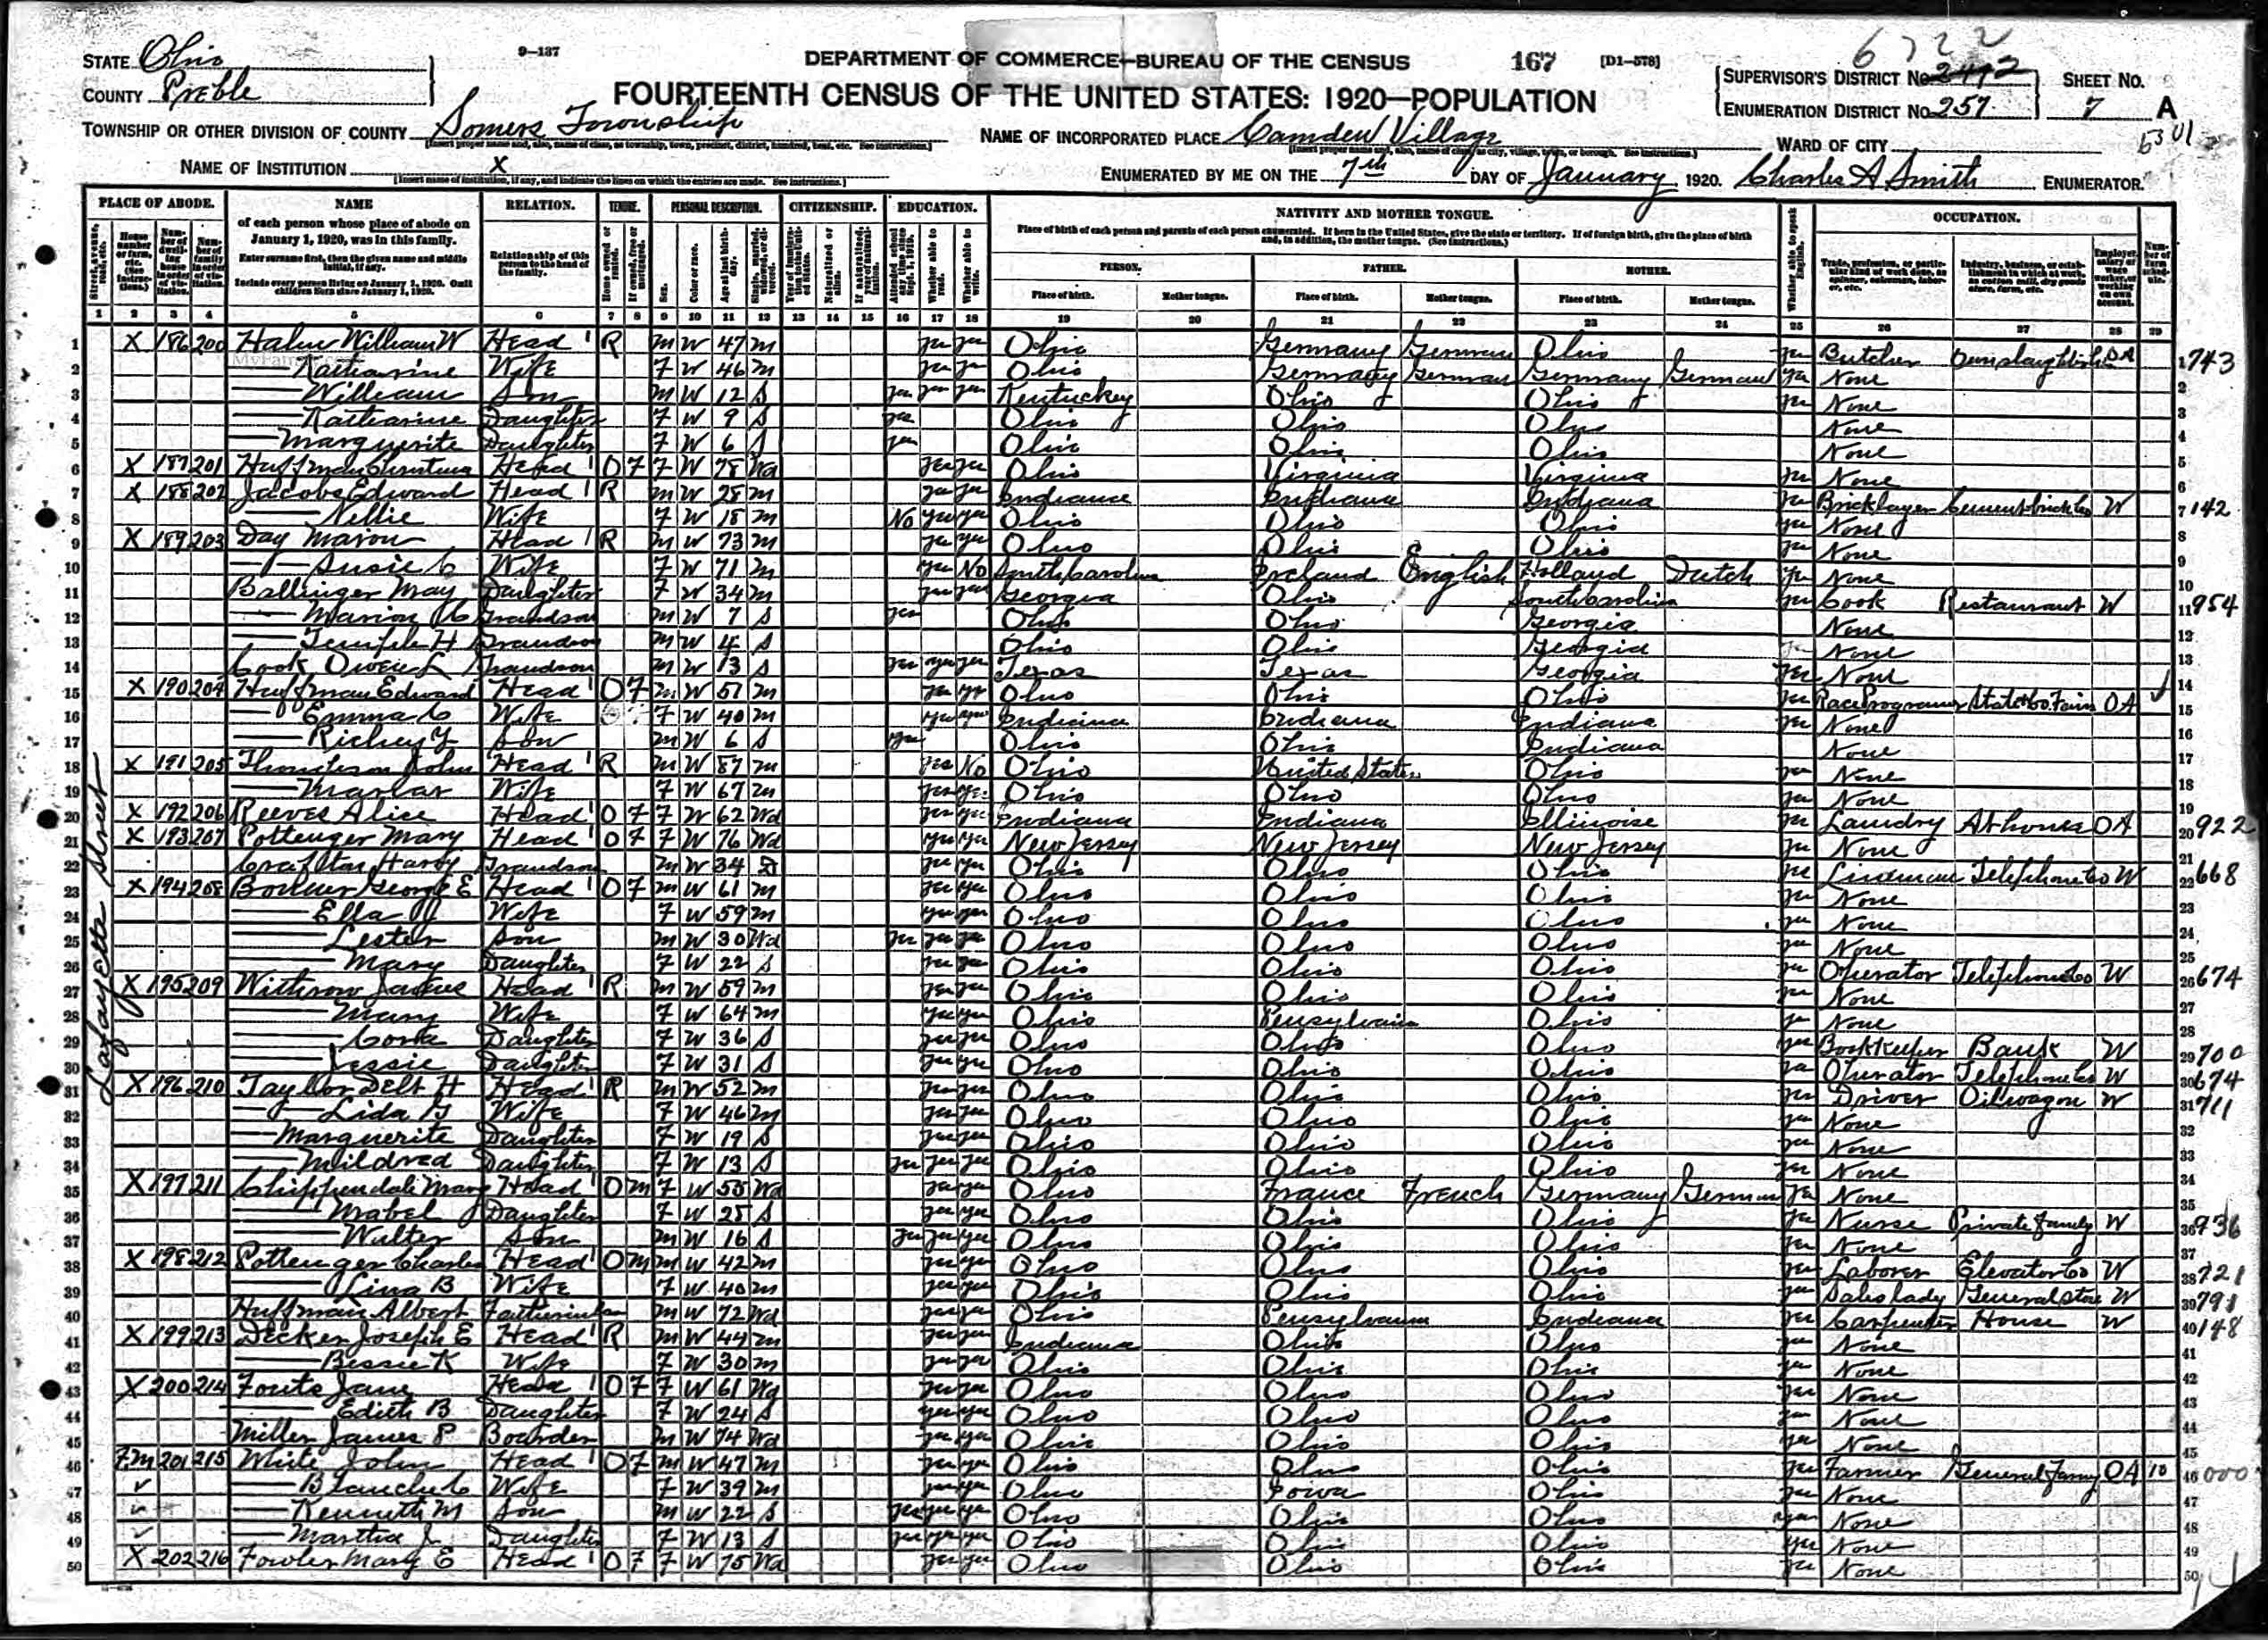 9-137
DEPARTMENT OF COMMERCE—BUREAU OF THE CENSUS
167
[D1-578]
6722
STATE Ohio
COUNTY Preble
FOURTEENTH CENSUS OF THE UNITED STATES: 1920—POPULATION
SUPERVISOR'S DISTRICT No. 2412
SHEET No.
ENUMERATION DISTRICT No. 257
7 A
TOWNSHIP OR OTHER DIVISION OF COUNTY Somers Township
NAME OF INCORPORATED PLACE Camden Village
WARD OF CITY
NAME OF INSTITUTION X
ENUMERATED BY ME ON THE 7th DAY OF January, 1920. Charles A Smith ENUMERATOR.
PLACE OF ABODE. NAME RELATION. TENURE. PERSONAL DESCRIPTION. CITIZENSHIP. EDUCATION. NATIVITY AND MOTHER TONGUE. OCCUPATION.
of each person whose place of abode on January 1, 1920, was in this family.
Enter surname first, then the given name and middle initial, if any.
Include every person living on January 1, 1920. Omit children born since January 1, 1920.
Relationship of this person to the head of the family.
Place of birth of each person and parents of each person enumerated. If born in the United States, give the state or territory. If of foreign birth, give the place of birth and, in addition, the mother tongue. (See instructions.)
PERSON. FATHER. MOTHER.
Place of birth. Mother tongue. Place of birth. Mother tongue. Place of birth. Mother tongue.
1 2 3 4 5 6 7 8 9 10 11 12 13 14 15 16 17 18 19 20 21 22 23 24 25 26 27 28 29
Lafayette Street
1 X 186 200 William W Head R M W 47 M yes yes Ohio Germany German Ohio yes Butcher OA 743
2 — Katharine Wife F W 46 M yes yes Ohio Germany German Germany German yes None
3 — William Son M W 12 S yes yes yes Kentucky Ohio Ohio yes None
4 — Katharine Daughter F W 9 S yes Ohio Ohio Ohio None
5 — Marguerite Daughter F W 6 S yes Ohio Ohio Ohio None
6 X 187 201 Huffman Head O F F W 78 Wd yes yes Ohio Virginia Virginia yes None
7 X 188 202 Jacobs Edward Head R M W 28 M yes yes Indiana Indiana Indiana yes Bricklayer W 142
8 — Nellie Wife F W 18 M No yes yes Ohio Ohio Ohio yes None
9 X 189 203 Day Marion Head R M W 73 M yes yes Ohio Ohio Ohio yes None
10 — Susie C Wife F W 71 M yes No South Carolina Ireland English Holland Dutch yes None
11 Ballinger May Daughter F W 34 M yes yes Georgia Ohio South Carolina yes Cook Restaurant W 954
12 — Marion C Grandson M W 7 S yes Ohio Ohio Georgia None
13 — H Grandson M W 4 S Ohio Ohio Georgia None
14 Cook Owen L Grandson M W 13 S yes yes yes Texas Texas Georgia yes None
15 X 190 204 Huffman Edward Head O F M W 51 M yes yes Ohio Ohio Ohio yes Race OA
16 — Emma C Wife F W 40 M yes yes Indiana Indiana Indiana yes None
17 — Richey Y Son M W 6 S yes Ohio Ohio Indiana None
18 X 191 205 Thompson John Head R M W 87 M yes No Ohio United States Ohio yes None
19 — Wife F W 67 M yes yes Ohio Ohio Ohio yes None
20 X 192 206 Reeves Alice Head O F F W 62 Wd yes yes Indiana Indiana Illinoise yes Laundry At home OA 922
21 X 193 207 Pottenger Mary Head O F F W 76 Wd yes yes New Jersey New Jersey New Jersey yes None
22 Harry Grandson M W 34 D yes yes Ohio Ohio Ohio yes Lineman Telephone Co W 668
23 X 194 208 George E Head O F M W 61 M yes yes Ohio Ohio Ohio yes None
24 — Ella Wife F W 59 M yes yes Ohio Ohio Ohio yes None
25 — Lester Son M W 30 Wd yes yes yes Ohio Ohio Ohio yes None
26 — Mary Daughter F W 22 S yes yes Ohio Ohio Ohio yes Operator Telephone Co W 674
27 X 195 209 Withrow James Head R M W 59 M yes yes Ohio Ohio Ohio yes None
28 — Mary Wife F W 64 M yes yes Ohio Pensylvania Ohio yes None
29 — Cora Daughter F W 36 S yes yes Ohio Ohio Ohio yes Bookkeeper Bank W 700
30 — Jessie Daughter F W 31 S yes yes Ohio Ohio Ohio yes Operator Telephone Co W 674
31 X 196 210 Taylor Delt H Head R M W 52 M yes yes Ohio Ohio Ohio yes Driver Oil wagon W 711
32 — Lida G Wife F W 46 M yes yes Ohio Ohio Ohio yes None
33 — Marguerite Daughter F W 19 S yes yes Ohio Ohio Ohio yes None
34 — Mildred Daughter F W 13 S yes yes yes Ohio Ohio Ohio yes None
35 X 197 211 Chippendale Mary Head O M F W 55 Wd yes yes Ohio France French Germany German yes None
36 — Mabel Daughter F W 25 S yes yes Ohio Ohio Ohio yes Nurse Private family W 936
37 — Walter Son M W 16 S yes yes yes Ohio Ohio Ohio yes None
38 X 198 212 Pottenger Charles Head O M M W 42 M yes yes Ohio Ohio Ohio yes Laborer Elevator Co W 721
39 — Lina B Wife F W 40 M yes yes Ohio Ohio Ohio yes Saleslady General store W 791
40 Huffman Albert Fatherinlaw M W 72 Wd yes yes Ohio Pensylvania Indiana yes Carpenter House W 148
41 X 199 213 Decker Joseph E Head R M W 44 M yes yes Indiana Ohio Ohio yes None
42 — Bessie K Wife F W 30 M yes yes Ohio Ohio Ohio yes None
43 X 200 214 Fouts Jane Head O F F W 61 Wd yes yes Ohio Ohio Ohio yes None
44 — Edith B Daughter F W 24 S yes yes Ohio Ohio Ohio yes None
45 Miller James P Boarder M W 74 Wd yes yes Ohio Ohio Ohio yes None
46 Fm 201 215 White John Head O F M W 47 M yes yes Ohio Ohio Ohio yes Farmer General Farm OA 10 000
47 — Blanche C Wife F W 39 M yes yes Ohio Iowa Ohio yes None
48 — Kenneth M Son M W 22 S yes yes yes Ohio Ohio Ohio yes None
49 — Martha J Daughter F W 13 S yes yes yes Ohio Ohio Ohio yes None
50 X 202 216 Fowler Mary E Head O F F W 75 Wd yes yes Ohio Ohio Ohio yes None